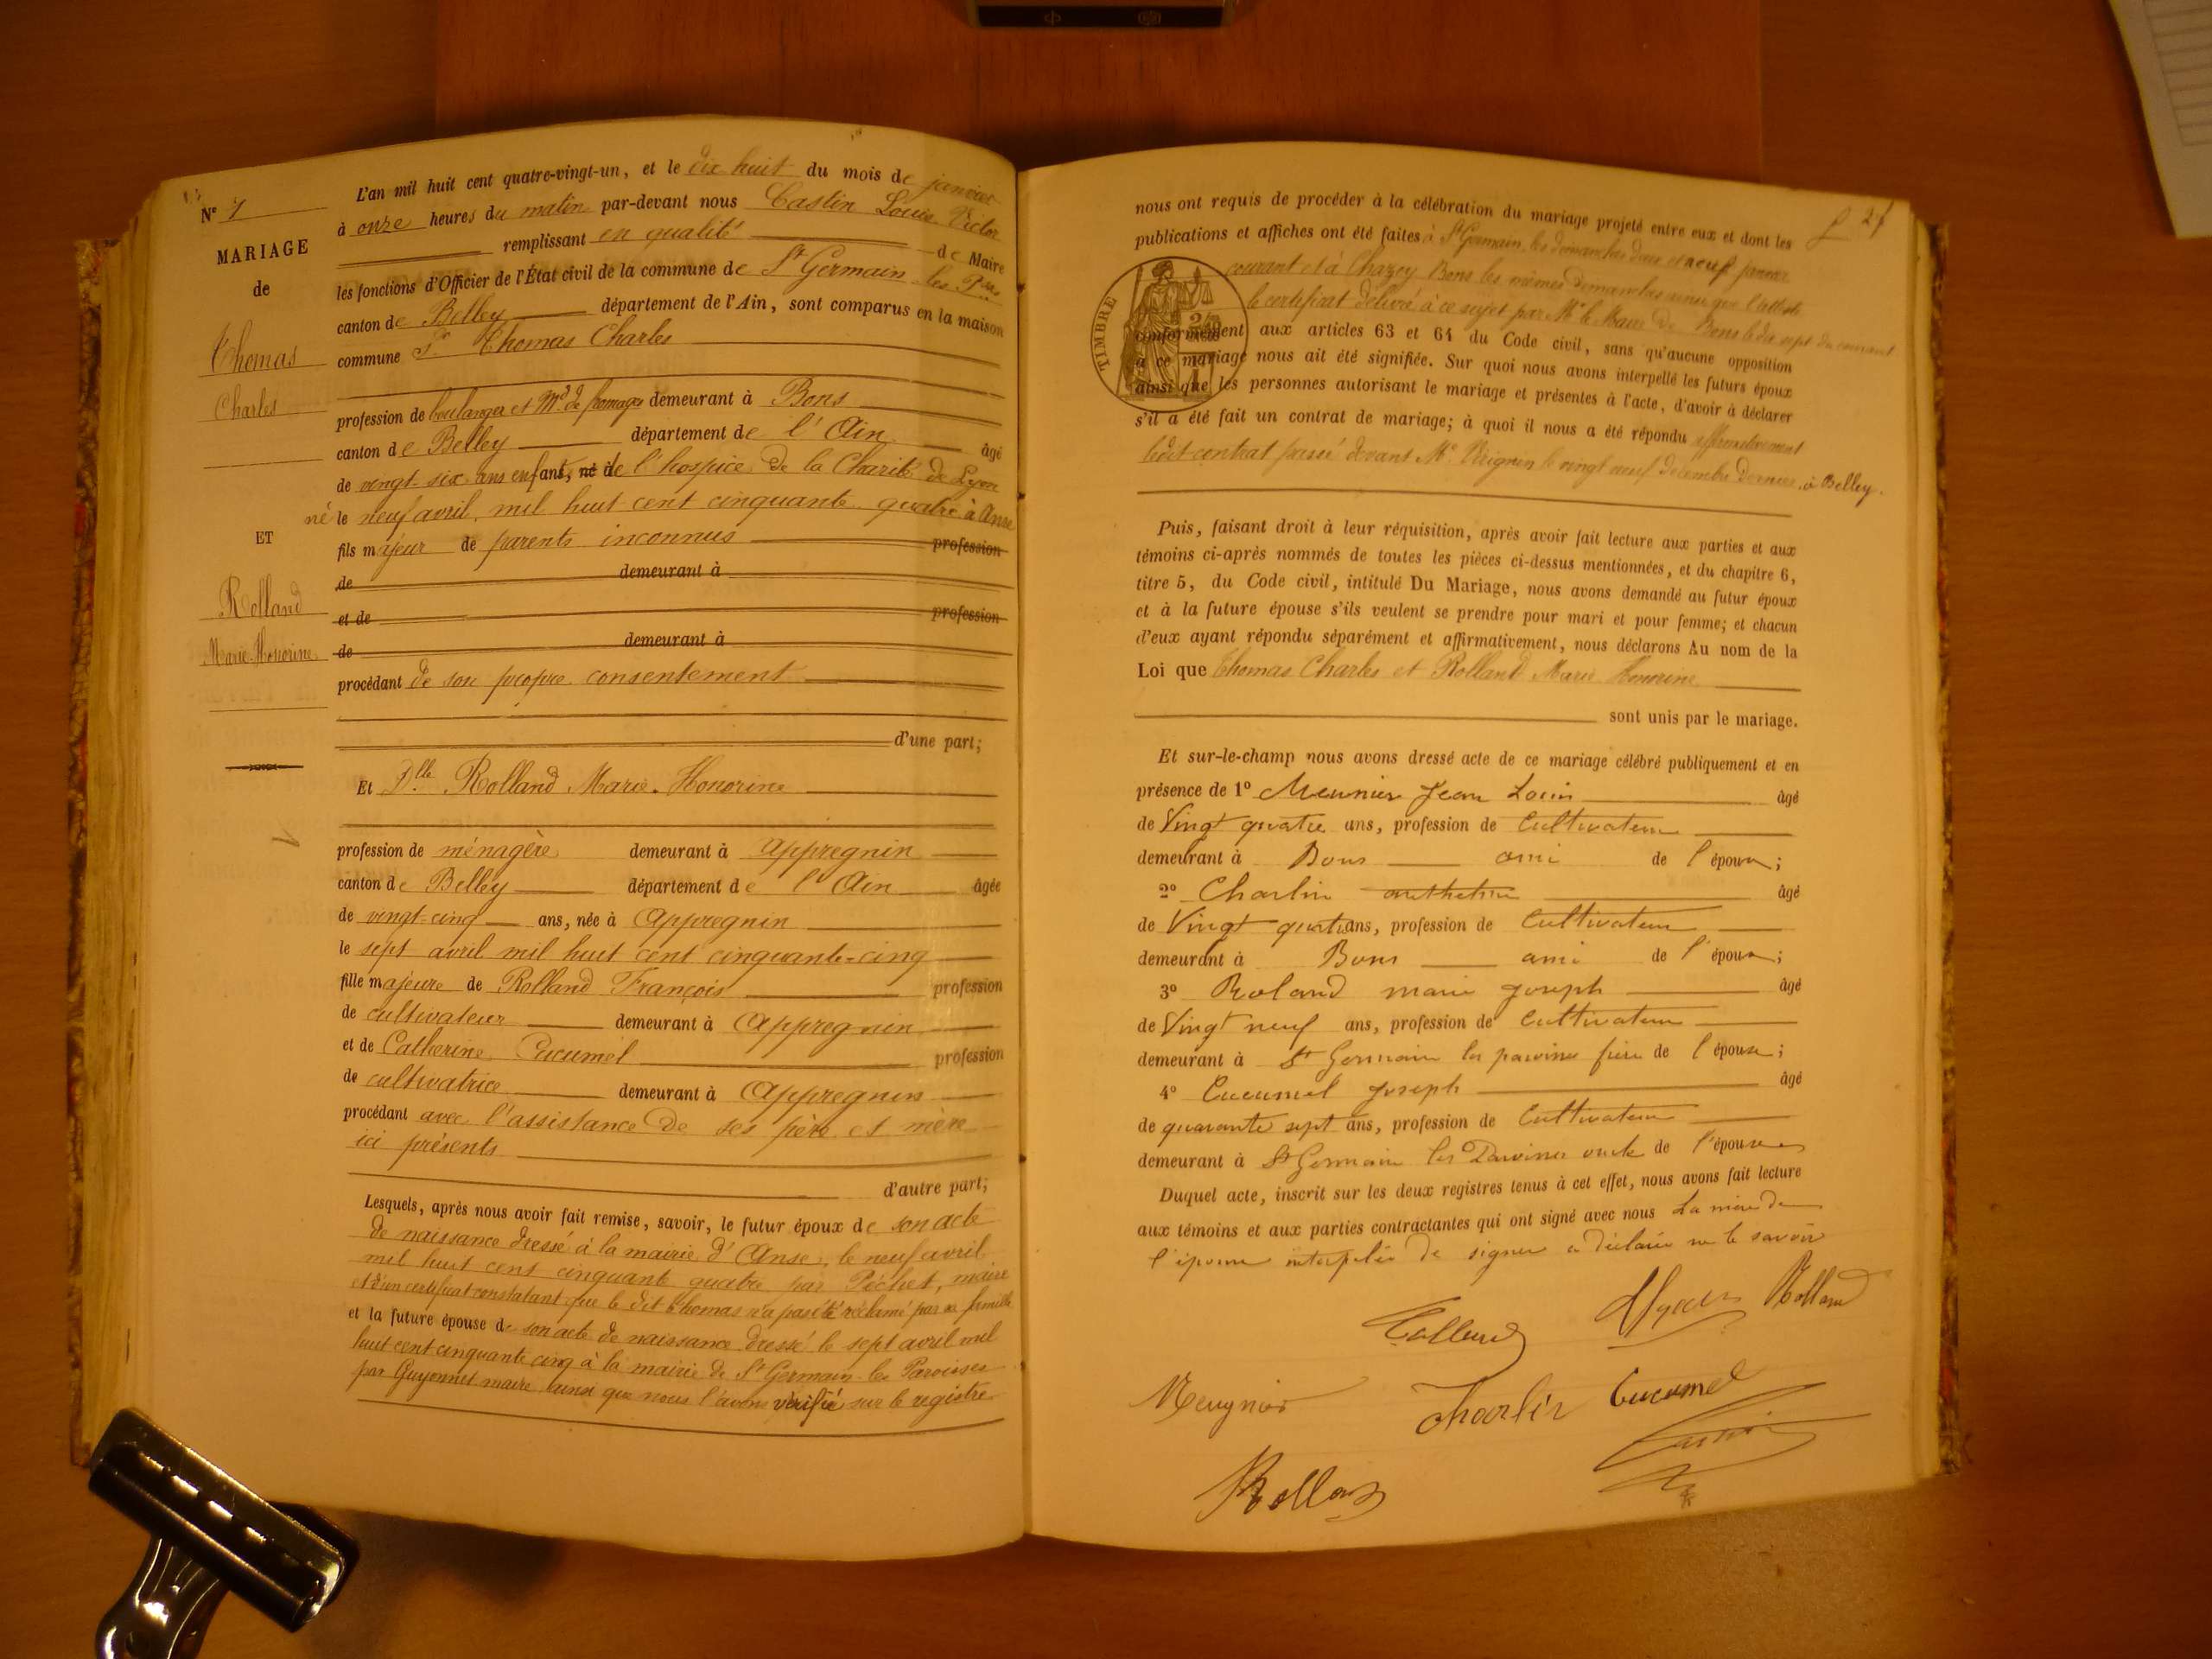 N° 7
MARIAGE
de
Thomas
Charles
ET
Rolland
Marie-Honorine
L'an mil huit cent quatre-vingt-un, et le dix huit du mois de janvier
à onze heures du matin par-devant nous Castin Louis Victor
remplissant en qualité de Maire
les fonctions d'Officier de l'État civil de la commune de St Germain les Pses
canton de Belley département de l'Ain, sont comparus en la maison
commune Sr Thomas Charles
profession de boulanger et Md de fromages demeurant à Bons
canton de Belley département de l'Ain âgé
de vingt six ans enfant, né de l'hospice de la Charité de Lyon
né le neuf avril, mil huit cent cinquante quatre à Anse
fils majeur de parents inconnus profession
de demeurant à
et de profession
de demeurant à
procédant de son propre consentement
d'une part;
Et Dlle Rolland Marie-Honorine
profession de ménagère demeurant à Appregnin
canton de Belley département de l'Ain âgée
de vingt-cinq ans, née à Appregnin
le sept avril mil huit cent cinquante-cinq
fille majeure de Rolland François profession
de cultivateur demeurant à Appregnin
et de Catherine Cucumel profession
de cultivatrice demeurant à Appregnin
procédant avec l'assistance de ses père et mère
ici présents
d'autre part;
Lesquels, après nous avoir fait remise, savoir, le futur époux de son acte
de naissance dressé à la mairie d'Anse, le neuf avril
mil huit cent cinquante quatre par Péchet, maire
et d'un certificat constatant que le dit Thomas n'a pas été réclamé par sa famille
et la future épouse de son acte de naissance dressé le sept avril mil
huit cent cinquante cinq à la mairie de St Germain les Paroisses
par Guyonnet maire ainsi que nous l'avons vérifié sur le registre
f 27
nous ont requis de procéder à la célébration du mariage projeté entre eux et dont les
publications et affiches ont été faites à St Germain les dimanches deux et neuf janvier
courant et à Chazey Bons les mêmes dimanches ainsi que l'atteste
le certificat délivré à ce sujet par Mr le Maire de Bons le dix sept du courant
TIMBRE
conformément aux articles 63 et 64 du Code civil, sans qu'aucune opposition
à ce mariage nous ait été signifiée. Sur quoi nous avons interpellé les futurs époux
ainsi que les personnes autorisant le mariage et présentes à l'acte, d'avoir à déclarer
s'il a été fait un contrat de mariage; à quoi il nous a été répondu affirmativement
ledit contrat passé devant Me le vingt neuf décembre dernier, à Belley.
Puis, faisant droit à leur réquisition, après avoir fait lecture aux parties et aux
témoins ci-après nommés de toutes les pièces ci-dessus mentionnées, et du chapitre 6,
titre 5, du Code civil, intitulé Du Mariage, nous avons demandé au futur époux
et à la future épouse s'ils veulent se prendre pour mari et pour femme; et chacun
d'eux ayant répondu séparément et affirmativement, nous déclarons Au nom de la
Loi que Thomas Charles et Rolland Marie Honorine
sont unis par le mariage.
Et sur-le-champ nous avons dressé acte de ce mariage célébré publiquement et en
présence de 1° Meunier Jean Louis âgé
de Vingt quatre ans, profession de Cultivateur
demeurant à Bons ami de l'époux;
2° Charlin âgé
de Vingt quatre ans, profession de Cultivateur
demeurant à Bons ami de l'époux;
3° Roland marie joseph âgé
de Vingt neuf ans, profession de Cultivateur
demeurant à St Germain les paroisses frère de l'épouse;
4° Cucumel joseph âgé
de quarante sept ans, profession de Cultivateur
demeurant à St Germain les Paroisses oncle de l'épouse
Duquel acte, inscrit sur les deux registres tenus à cet effet, nous avons fait lecture
aux témoins et aux parties contractantes qui ont signé avec nous La mère de
l'épouse interpellée de signer a déclaré ne le savoir
Rolland
Meugnier Charlin Cucumel
Castin
Rolland